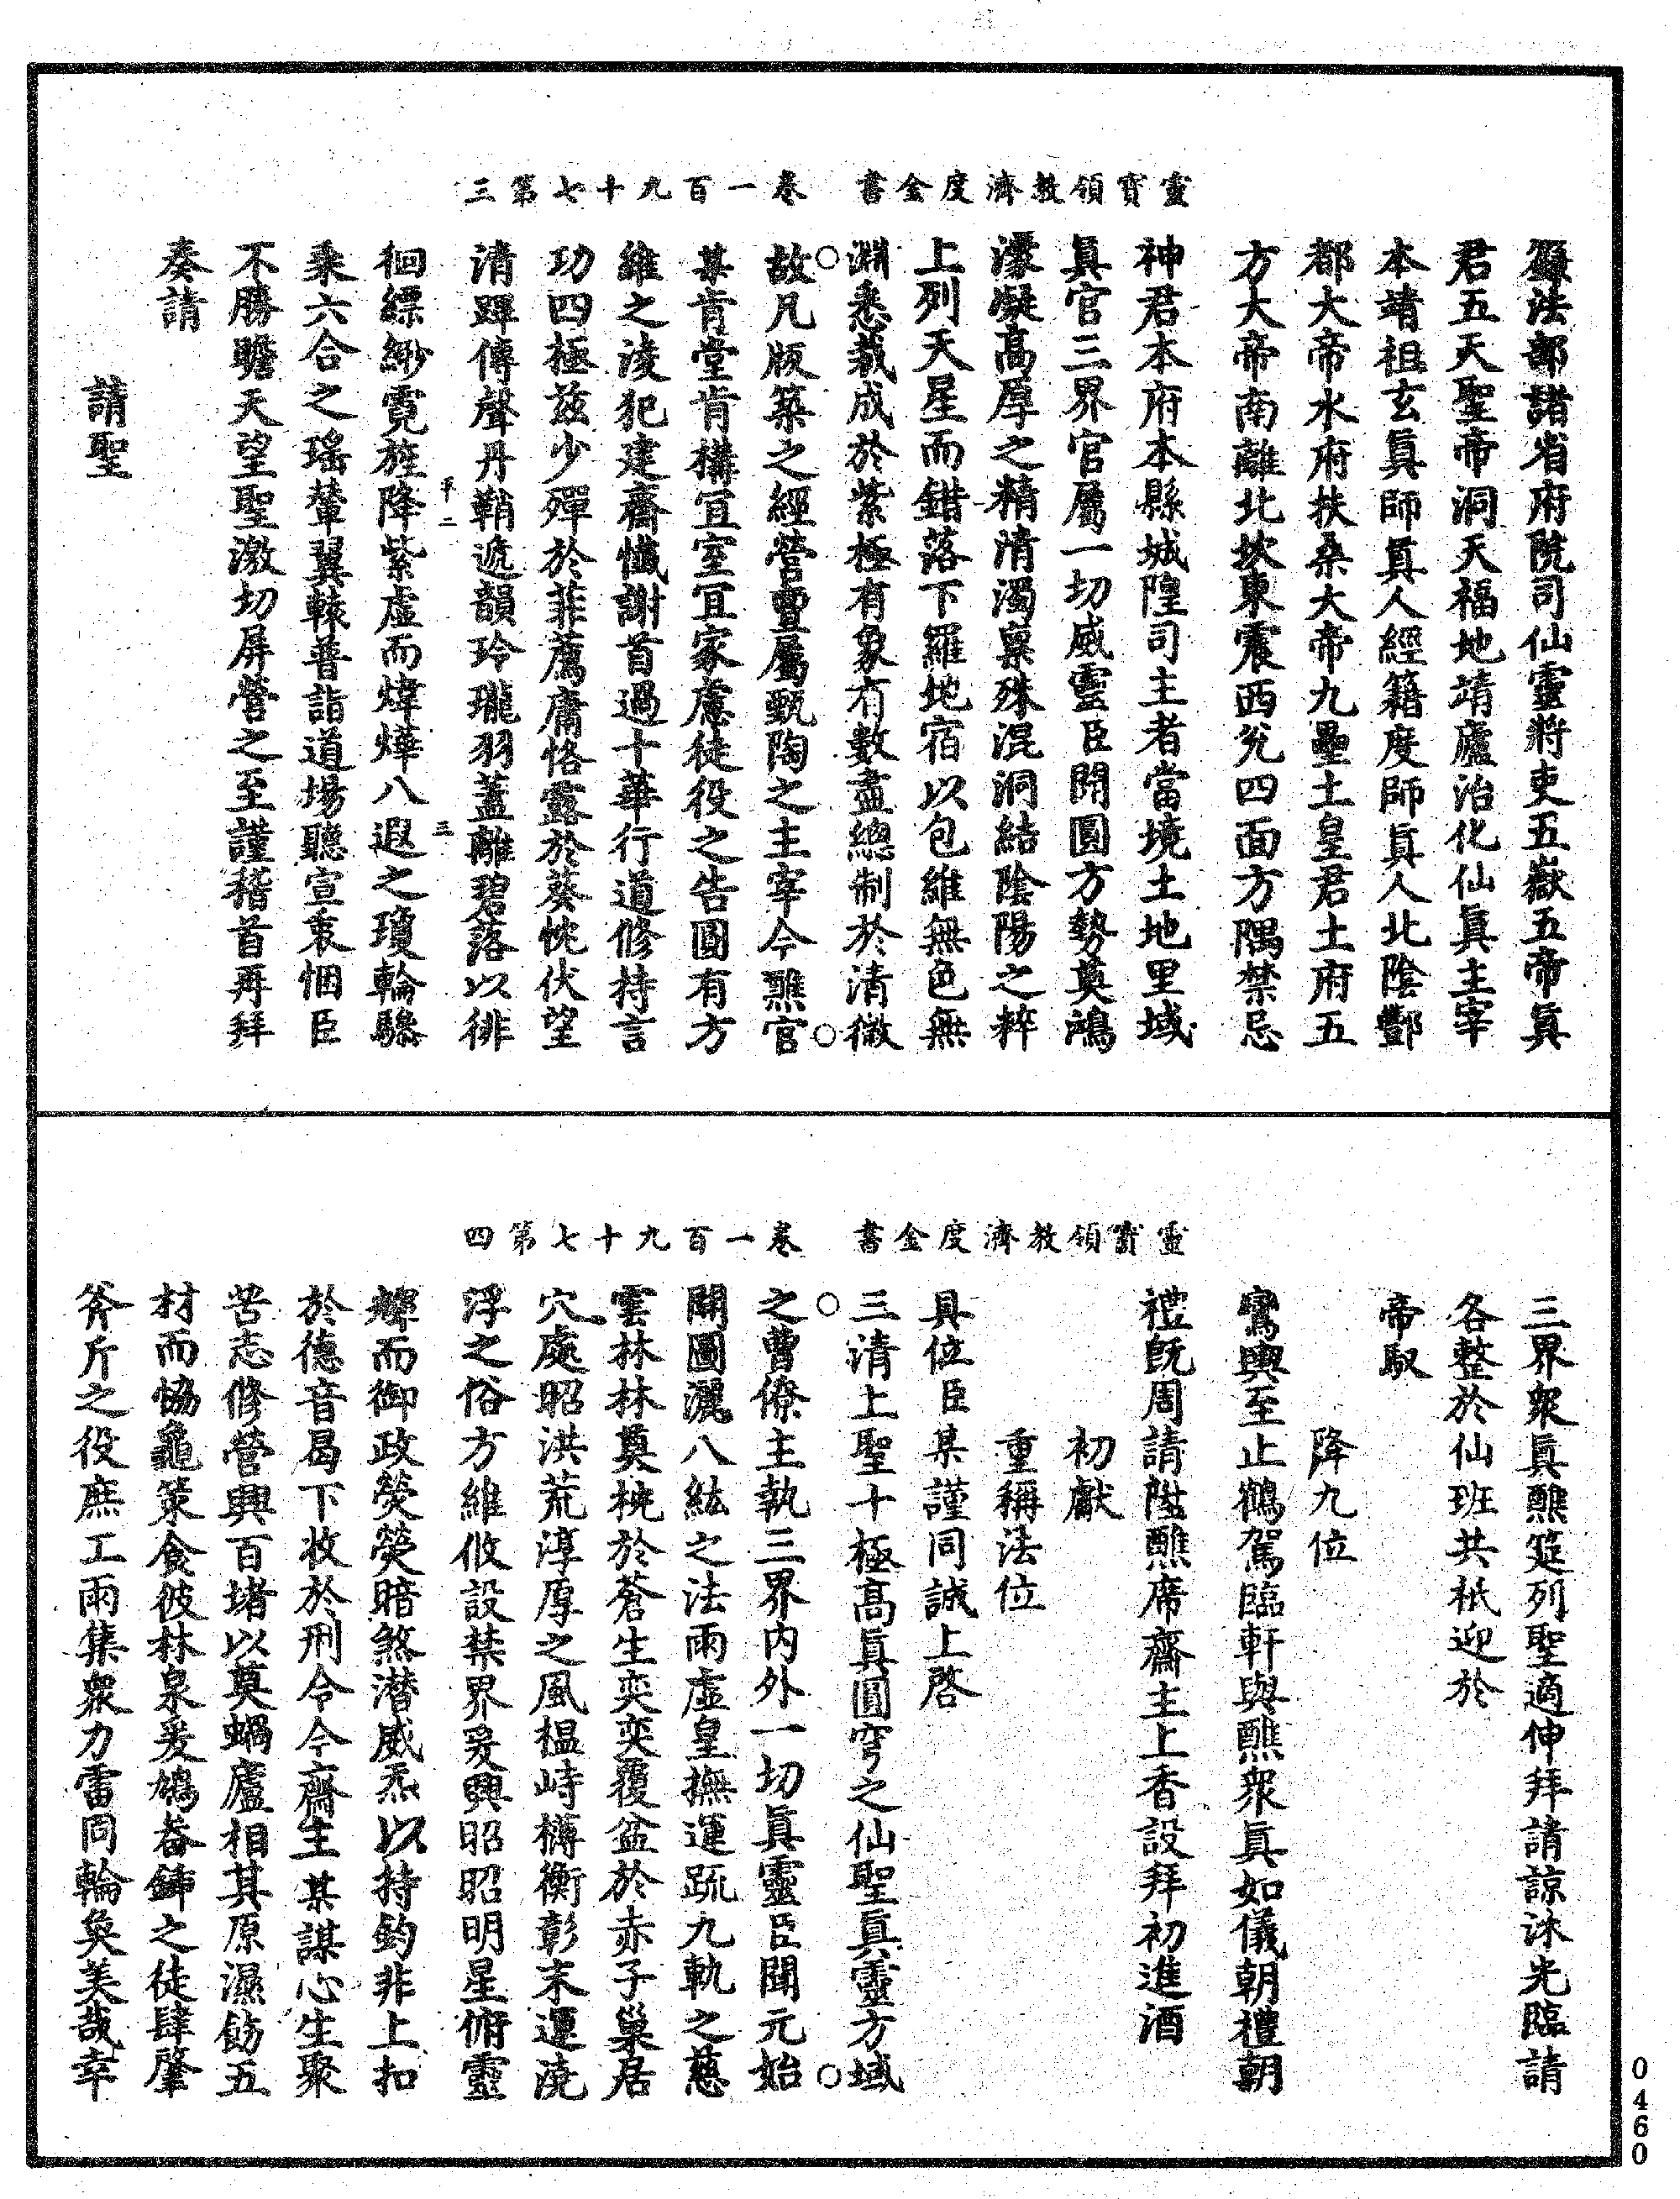 靈寶領教濟度金書　卷一百九十七第三
籙法部諸省府院司仙靈將吏五嶽五帝眞
君五天聖帝洞天福地靖廬治化仙眞主宰
本靖祖玄眞師眞人經籍度師眞人北陰酆
都大帝水府扶桑大帝九壘土皇君土府五
方大帝南離北坎東震西兌四面方隅禁忌
神君本府本縣城隍司主者當境土地里域
眞官三界官屬一切威靈臣聞圓方勢奠鴻
濛凝高厚之精清濁稟殊混洞結陰陽之粹
上列天星而錯落下羅地宿以包維無色無
淵悉蓘成於紫極有象有數盡總制於清微
故凡版築之經營亶屬甄陶之主宰今醮官
某肯堂肯構宜室宜家慮徒役之告圓有方
維之淩犯建齋懺謝首過十華行道修持言
功四極茲少殫於菲薦庸恪露於葵忱伏望
清蹕傳聲丹鞘遞韻玲瓏羽蓋離碧落以徘
平二　三
徊縹緲霓旌降紫虛而煒燁八遐之瓊輪驂
乘六合之瑤輦翼轅普詣道場聽宣衷悃臣
不勝瞻天望聖激切屏營之至謹稽首再拜
奏請
請聖
靈寶領教濟度金書　卷一百九十七第四
三界眾眞醮筵列聖適伸拜請諒沐光臨請
各整於仙班共祇迎於
帝馭
降九位
鸞輿至止鶴駕臨軒與醮眾眞如儀朝禮朝
禮旣周請陞醮席齋主上香設拜初進酒
初獻
重稱法位
具位臣某謹同誠上啓
三清上聖十極高眞圓穹之仙聖眞靈方域
之曹僚主執三界內外一切眞靈臣聞元始
開圖灑八紘之法雨虛皇撫運疏九軌之慈
雲林林奠枕於蒼生奕奕覆盆於赤子巢居
穴處昭洪荒淳厚之風楹峙櫨衡彰末運澆
浮之俗方維攸設禁界爰興昭昭明星俯靈
輝而御政熒熒暗煞潛威炁以持鈞非上扣
於德音曷下攽於刑令今齋主某謀心生聚
苦志修營興百堵以奠蝸廬相其原濕飭五
材而恊龜筴食彼林泉爰鳩畚鍤之徒肆肇
斧斤之役庶工雨集眾力雷同輪奐美哉幸
0460